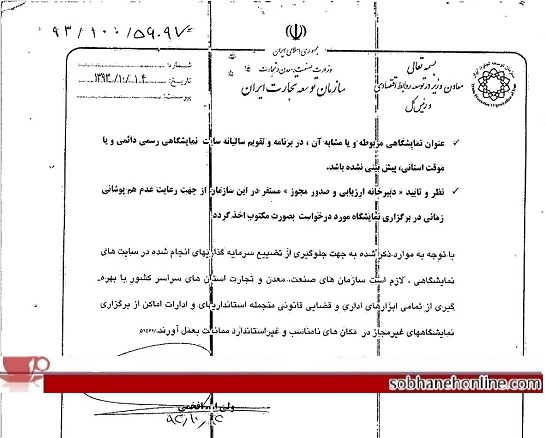 ۹۳/۱۰۰/۵۹۰۹۷
جمهوری اسلامی ایران
وزارت صنعت، معدن و تجارت
سازمان توسعه تجارت ایران
بسمه تعالی
معاون وزیر در توسعه روابط اقتصادی
و رئیس کل
شماره:
تاریخ: ۱۳۹۳/۱۰/۱۴
پیوست:
✓ عنوان نمایشگاهی مربوطه و یا مشابه آن ، در برنامه و تقویم سالیانه سایت نمایشگاهی رسمی دائمی و یا
موقت استانی، پیش بینی نشده باشد.
✓ نظر و تایید « دبیرخانه ارزیابی و صدور مجوز » مستقر در این سازمان از جهت رعایت عدم هم پوشانی
زمانی در برگزاری نمایشگاه مورد درخواست بصورت مکتوب اخذ گردد
با توجه به موارد ذکر شده به جهت جلوگیری از تضییع سرمایه گذاریهای انجام شده در سایت های
نمایشگاهی ، لازم است سازمان های صنعت، معدن و تجارت استان های سراسر کشور با بهره
گیری از تمامی ابزارهای اداری و قضایی قانونی منجمله استانداریهای و ادارات اماکن از برگزاری
نمایشگاههای غیرمجاز در مکان های نامناسب و غیراستاندارد ممانعت بعمل آورند.
sobhanehonline.com
ولی اله افخمی